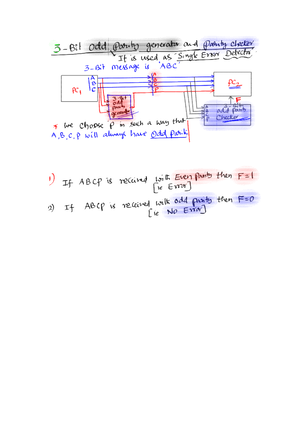 3-Bit Odd Parity generator and Parity checker
It is used as "Single Error Detector
3-Bit message is "ABC"
A
B
C
PC1
PC2
3-Bit
odd
Parity
P
F
odd parity
checker
* we choose P in such a way that
A,B,C,P will always have odd Parit
1) If ABCP is received with Even parity then F=1
[ie Error]
2) If ABCP is received with odd parity then F=0
[ie No Error]